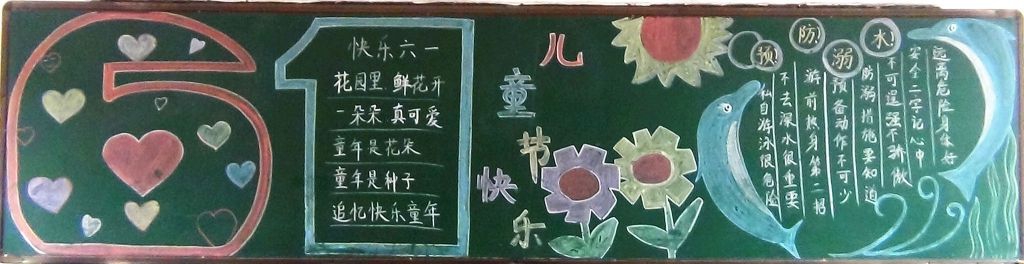 61
快乐六一
花园里 鲜花开
一朵朵 真可爱
童年是花朵
童年是种子
追忆快乐童年
儿童节快乐
预防溺水
私自游泳很危险
不去深水很重要
游前热身第二招
预备动作不可少
防溺措施要知道
不可逞强不骄傲
安全二字记心中
远离危险身体好